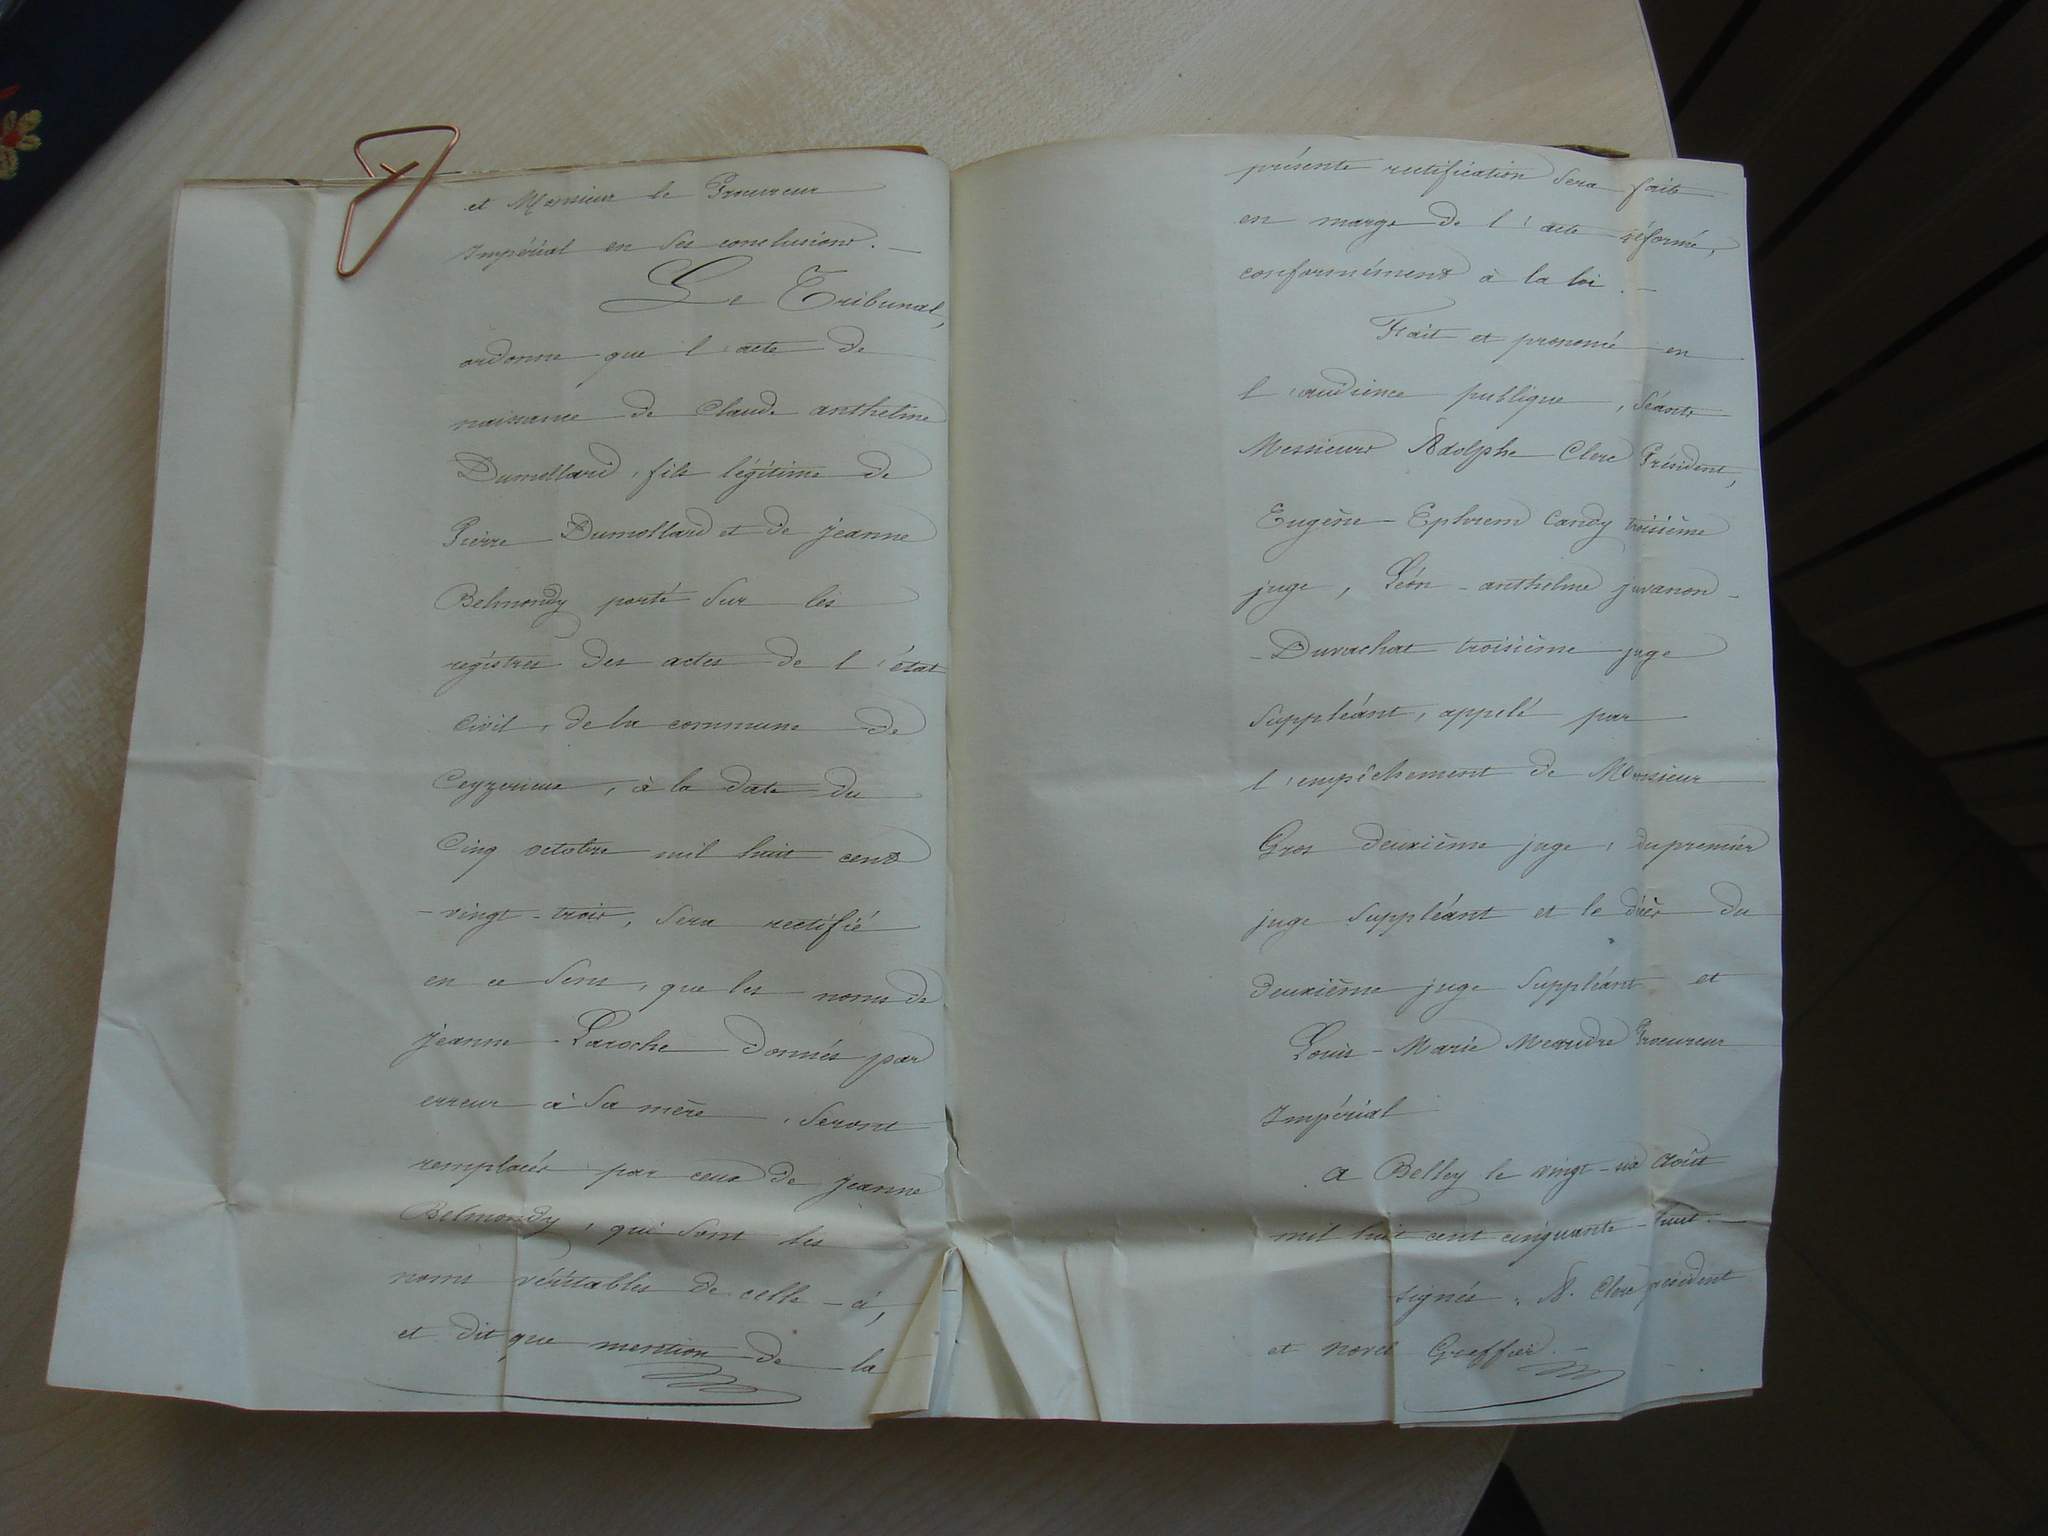 et Monsieur le Procureur
Impérial en ses conclusions. —
Le Tribunal,
ordonne que l'acte de
naissance de Claude anthelme
Dumollard, fils légitime de
Pierre Dumollard et de jeanne
Belmondy porté sur les
registres des actes de l'état
Civil, de la commune de
Ceyzerieu, à la date du
Cinq octobre mil huit cent
-vingt-trois, sera rectifié
en ce sens, que les noms de
jeanne Laroche donnés par
erreur à sa mère, seront
remplacés par ceux de jeanne
Belmondy, qui sont les
noms véritables de celle-ci,
et dit que mention de la
présente rectification sera faite
en marge de l'acte réformé,
conformément à la loi. —
Fait et prononcé en
l'audience publique, séants
Messieurs Adolphe Clerc Président,
Eugène-Ephrem Candy troisième
juge, Léon-anthelme juvanon-
-Duvachat troisième juge
suppléant, appelé par
l'empêchement de Monsieur
Gros deuxième juge, du premier
juge suppléant et le décès du
deuxième juge suppléant et
Louis-Marie Meaudre Procureur
Impérial
a Belley le vingt-six août
mil huit cent cinquante-huit. —
signés, A. Clerc président
et Greffier. —